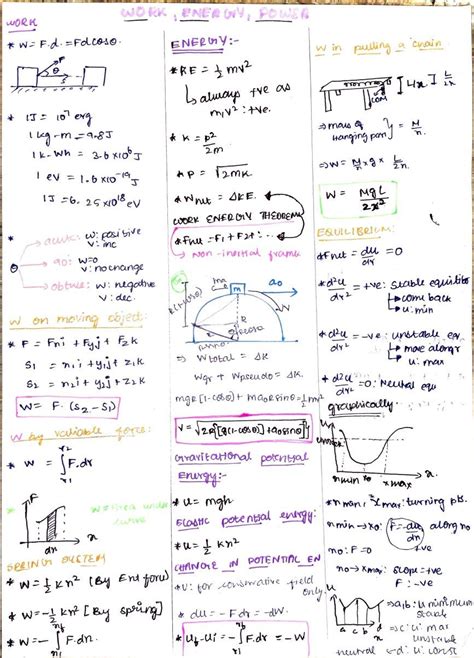 WORK, ENERGY, POWER
WORK
* W = F.d. = Fd cosθ.
F
θ
S
* 1J = 10⁷ erg
1 kg-m = 9.8J
1 k-wh = 3.6x10⁶ J
1 eV = 1.6x10⁻¹⁹ J
1J = 6.25x10¹⁸ eV
* θ
acute: w: positive
v: inc
90: w=0
v: no change
obtuse: w: negative
v: dec.
W on moving object:
* F = Fxi + Fyj + Fzk
S1 = x1i + y1j + z1k
S2 = x2i + y2j + z2k
W = F.(S2 - S1)
W by variable force:
* W = ∫ F.dr
x2
x1
F
dx
x
W = area under curve
SPRING SYSTEM
* W = ½ kx² [By Ext force]
* W = -½ kx² [By spring]
* W = -∫ F.dx.
ENERGY:-
* KE = ½ mv²
always +ve as
m, v²: +ve.
* K = p²/2m
* P = √2mK
* Wnet = ΔKE.
WORK ENERGY THEOREM
* Fnet = F1 + F2 + ...
Non-inertial frame
m
a0
R
⇒ Wtotal = ΔK.
Wgr + Wpseudo = ΔK
mgR[1-cosθ] + ma0R sinθ = ½ mv²
V = √2R[g(1-cosθ) + a0 sinθ]
Gravitational potential
Energy:-
* U = mgh
Elastic potential energy:
* U = ½ Kx²
CHANGE IN POTENTIAL EN
* U: for conservative field
only
* dU = -F.dr = -dW.
* Uf - Ui = -∫ F.dr = -W
W in pulling a chain
L/x
L/2x
COM
⇒ mass of
hanging part
} = M/n.
⇒ W = M/n x g x L/2n.
W = MgL/2x²
EQUILIBRIUM:
* Fnet = du/dr = 0
* d²u/dr² = +ve: stable equilib
come back
u: min
* d²u/dr² = -ve: unstable eq
move along r
u: max
* d²u/dr² = 0: Neutral equ
graphically
U
xmin
x0
xmax
x.
* xmax, xmax: turning pts.
xmin → x0:
F = -du/dx
along x0
+ve
x0: F=0
x0 → xmax: slope = +ve
F: -ve
U
a b c d
x
→ a,b: U minimum
stable
→ c: U: max
unstable
neutral ← d: U: const